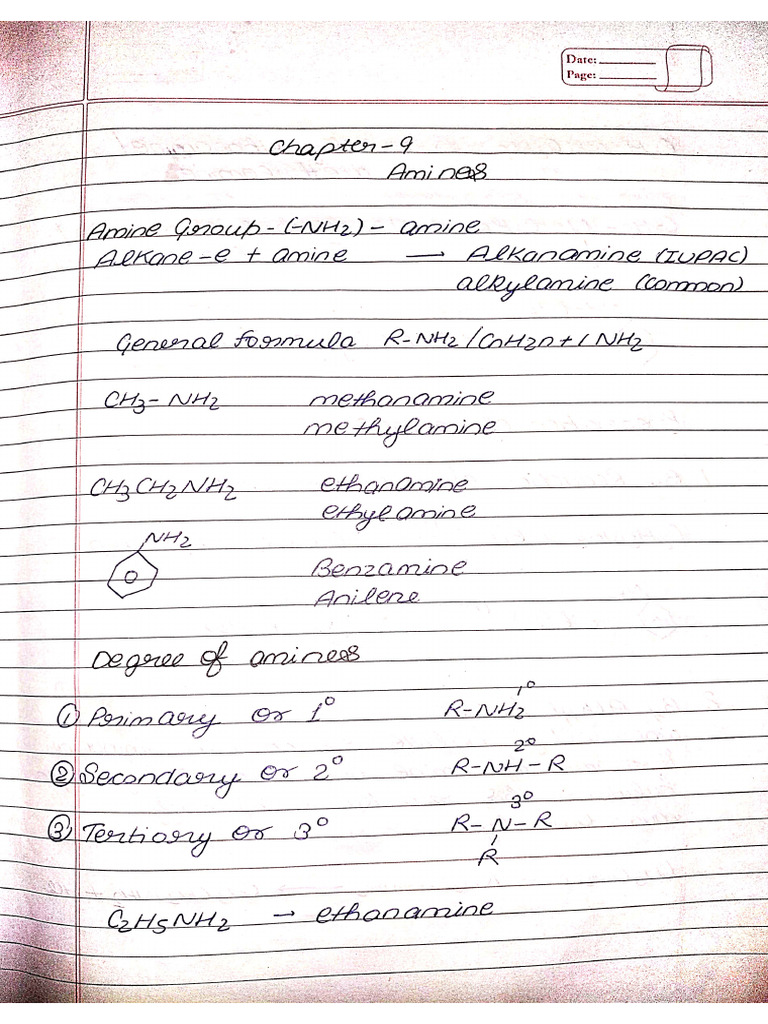 Date: ________
Page: ________
Chapter-9
Amines
Amine Group-(-NH2) - amine
Alkane-e + amine → Alkanamine (IUPAC)
alkylamine (common)
General formula R-NH2/CnH2n+1NH2
CH3-NH2 methanamine
methylamine
CH3CH2NH2 ethanamine
ethylamine
NH2
Benzamine
Anilene
Degree of amines
① Primary or 1° R-NH2 1°
② Secondary or 2° R-NH-R 2°
③ Tertiary or 3° R-N-R 3°
R
C2H5NH2 → ethanamine